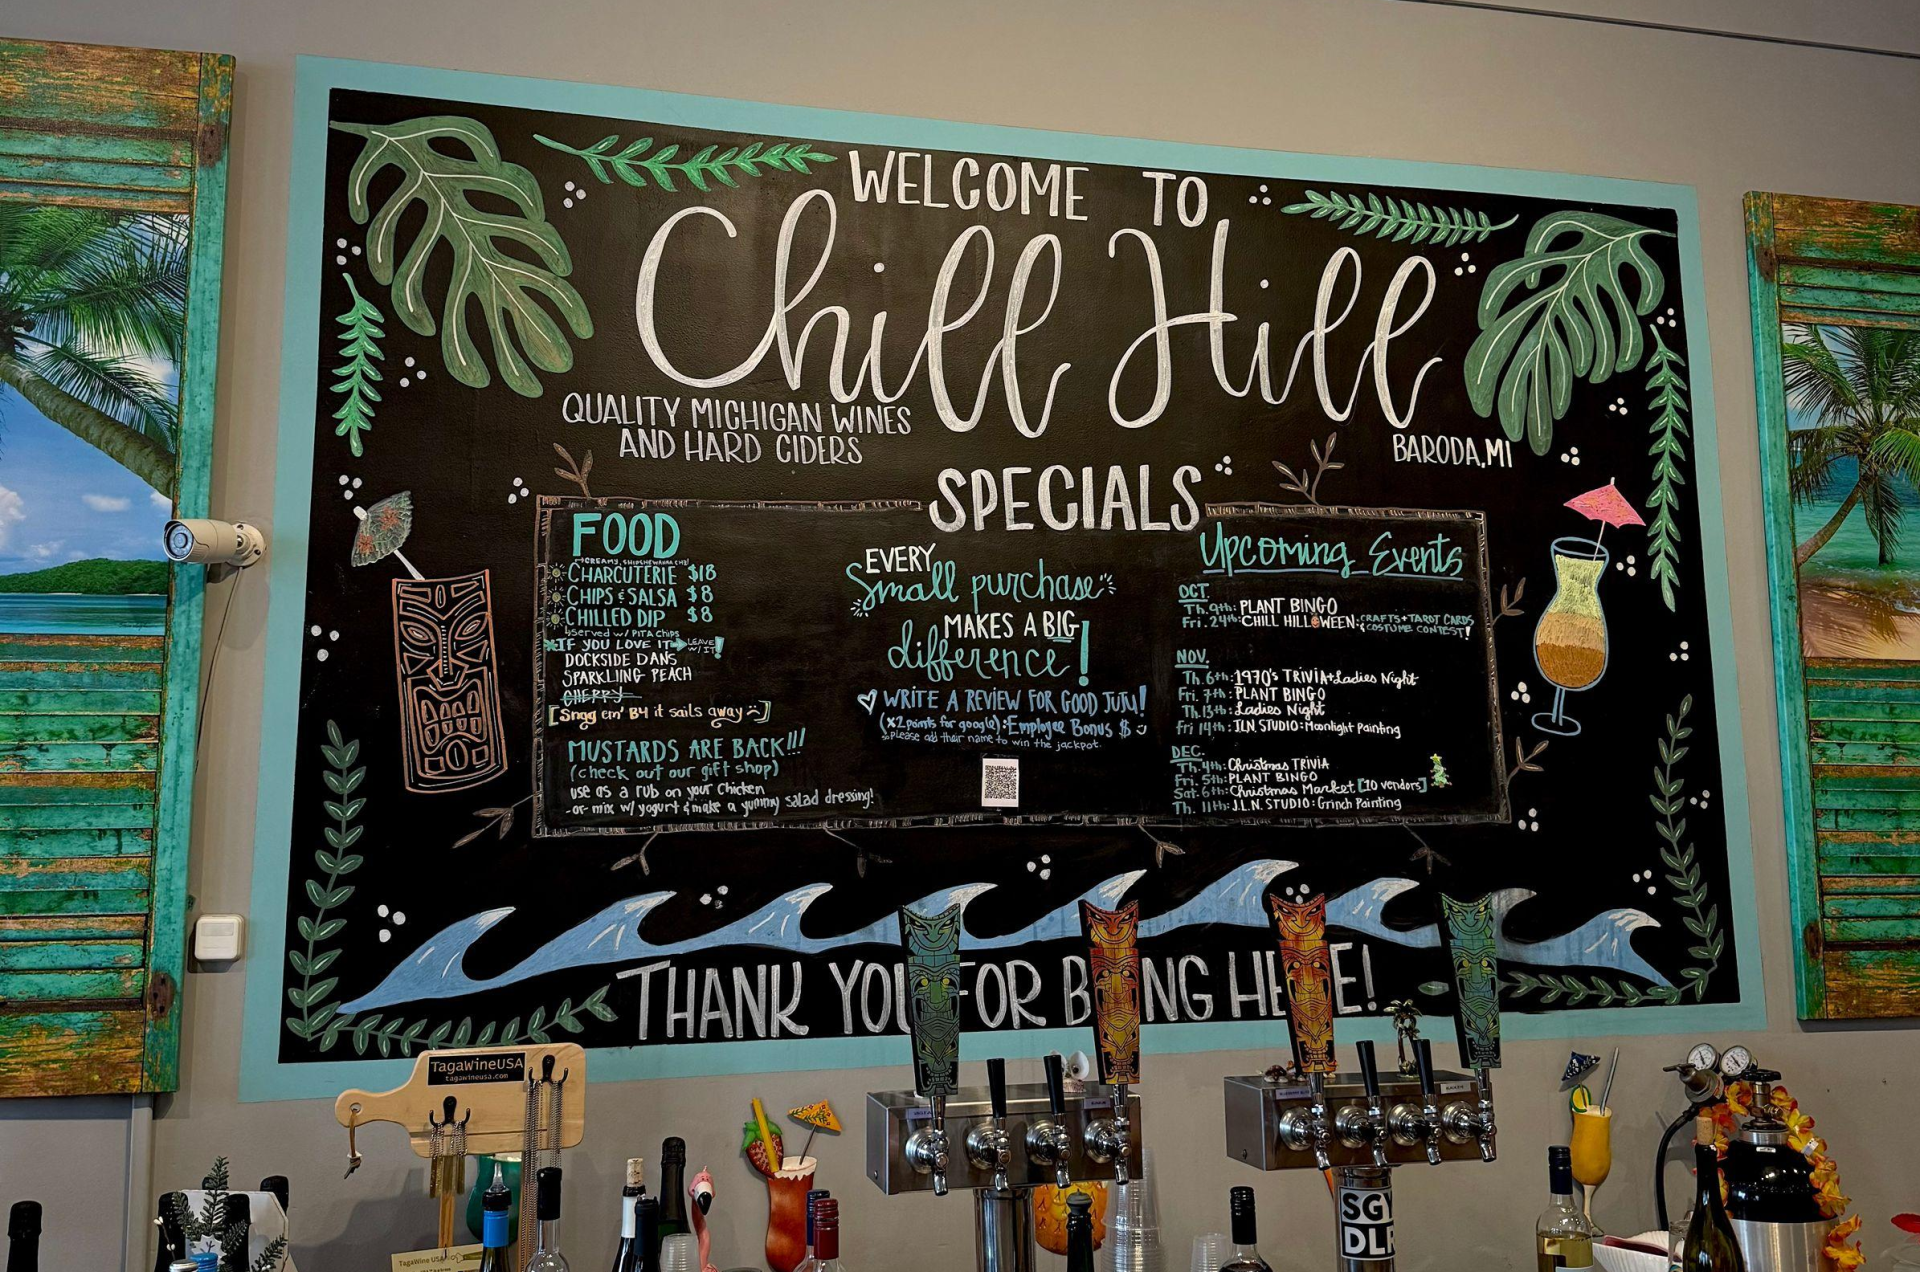 WELCOME TO
Chill Hill
QUALITY MICHIGAN WINES
AND HARD CIDERS
BARODA, MI
SPECIALS
FOOD
CHARCUTERIE $18
CHIPS & SALSA $8
CHILLED DIP $8
served w/ PITA CHIPS
*IF YOU LOVE IT LEAVE W/ IT!
DOCKSIDE DANS
SPARKLING PEACH
CHERRY
[Snag em' B4 it sails away]
MUSTARDS ARE BACK!!!
(check out our gift shop)
use as a rub on your chicken
-or mix w/ yogurt & make a yummy salad dressing!
EVERY
small purchase
MAKES A BIG
difference!
WRITE A REVIEW FOR GOOD JUJU!
(x2 points for google): Employee Bonus $
please add their name to win the jackpot.
Upcoming Events
OCT.
Th. 9th: PLANT BINGO
Fri. 24th: CHILL HILLOWEEN: CRAFTS + TAROT CARDS
& COSTUME CONTEST!
NOV.
Th. 6th: 1970's TRIVIA + Ladies Night
Fri. 7th: PLANT BINGO
Th. 13th: Ladies Night
Fri 14th: JLN STUDIO: Moonlight Painting
DEC.
Th. 4th: Christmas TRIVIA
Fri. 5th: PLANT BINGO
Sat. 6th: Christmas Market [10 vendors]
Th. 11th: J.L.N. STUDIO: Grinch Painting
THANK YOU FOR B NG HE E!
TagaWineUSA
tagawineusa.com
TagaWine USA
SGY
DLR